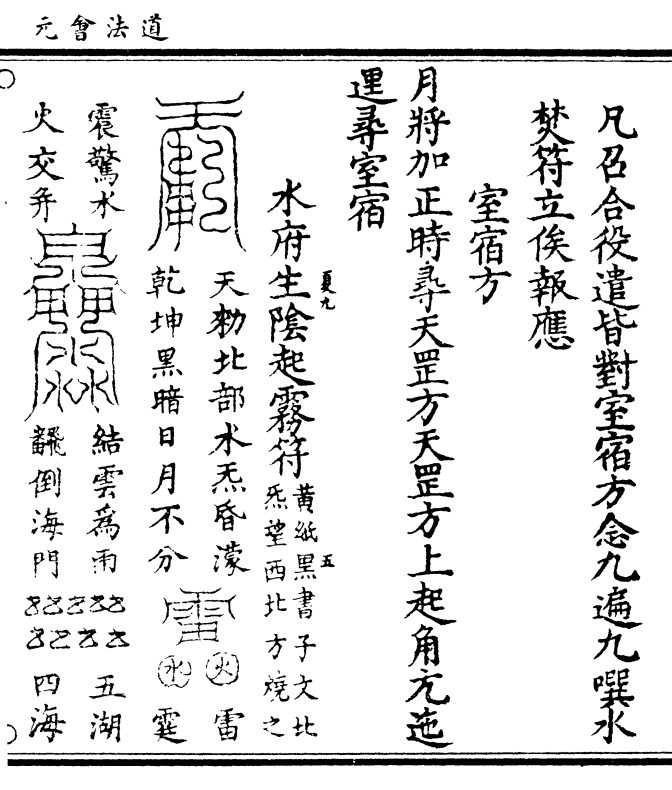 道法會元
凡召合役遣皆對室宿方念九遍九噀水
焚符立俟報應
室宿方
月將加正時尋天罡方天罡方上起角亢迤
𨓦尋室宿
夏九
五
水府生陰起霧符
黃紙黑書子文北
炁望西北方燒之
天勑北部水炁昏濛
火
雷
乾坤黑暗日月不分
水
霆
震驚水
結雲爲雨
五湖
火交弁
飜倒海門
四海